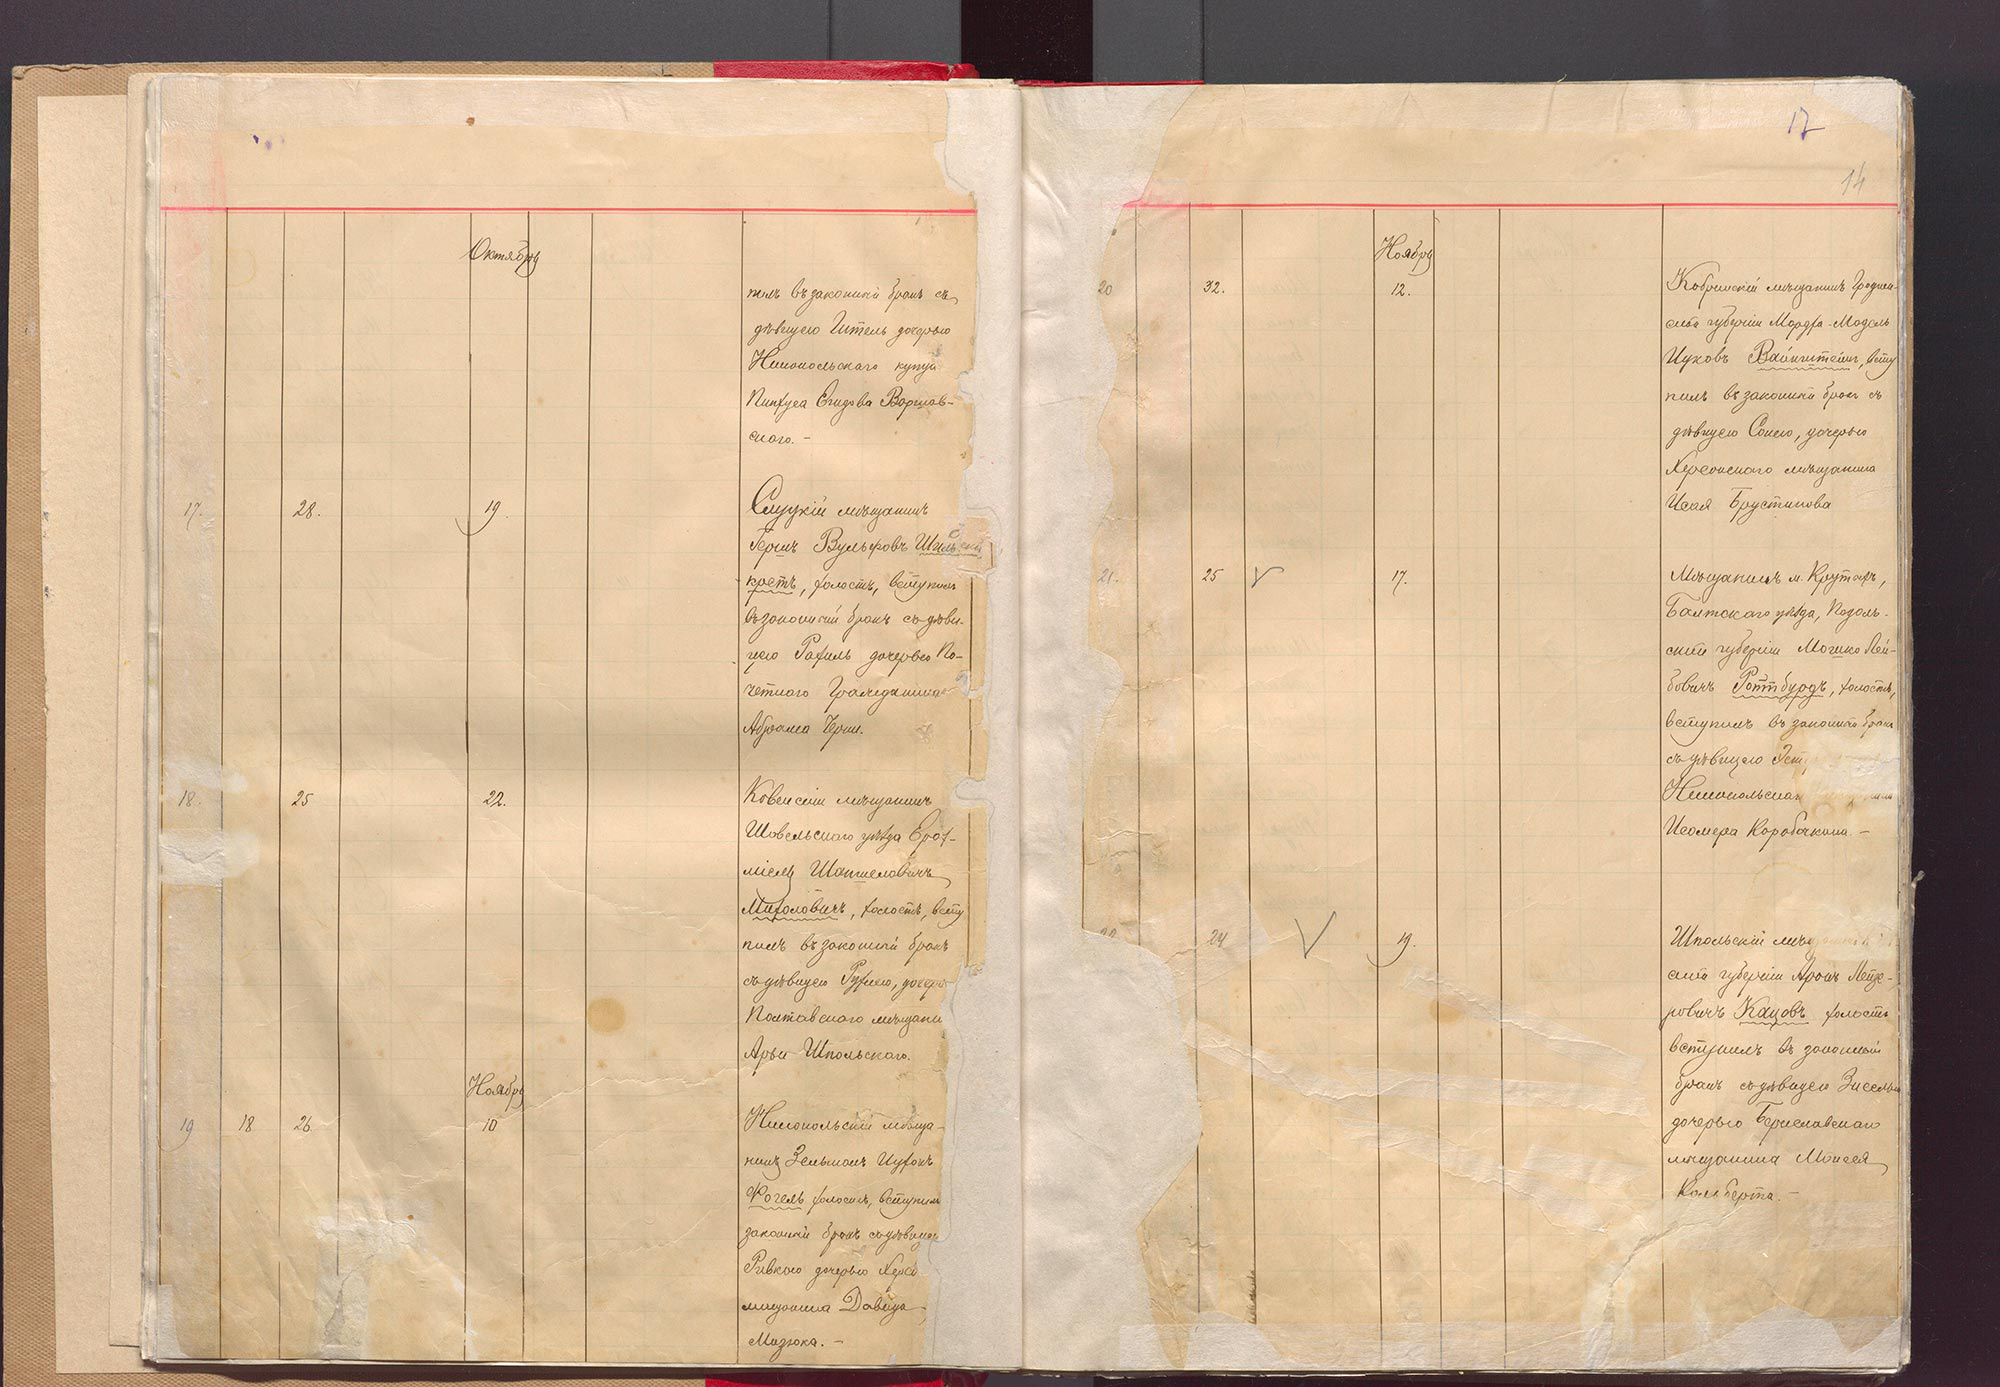 Октябрь
пилъ въ законный бракъ съ
дѣвицею Гитель дочерью
Никопольскаго купца
Пинхуса Варшав-
скаго. –
17. 28. 19.
Слуцкій мѣщанинъ
Герцъ Вульфовъ
холостъ, вступилъ
въ законный бракъ съ дѣви-
цею Рахиль дочерью По-
четнаго Гражданина
Абрама
18. 25 22.
Ковенскій мѣщанинъ
Шавельскаго уѣзда Ерах-
міель Шапшелевичъ
Михоловичъ, холостъ, всту
пилъ въ законный бракъ
съ дѣвицею дочерью
Полтавскаго мѣщани
Арьи Шпольскаго.
Ноябрь
19 18 26. 10
Никопольскій мѣща-
нинъ Зельманъ Ицхокъ
Фогель холостъ, вступилъ
законный бракъ съ дѣвицею
Ривкою дочерью Херс
мѣщанина Давида
Мазюка. –
17
14
Ноябрь
20 32. 12.
Кобринскій мѣщанинъ Гроднен-
ской губерніи Мордхе-Модель
Ицковъ Вайнштейнъ, всту
пилъ въ законный бракъ съ
дѣвицею Сонею, дочерью
Херсонскаго мѣщанина
Исая Брустинова
21. 25 V 17.
Мѣщанинъ м. Крутыхъ,
Балтскаго уѣзда, Подоль-
ской губерніи Мошко Лей-
бовичъ Роттбурдъ, холостъ,
вступилъ въ законный бракъ
съ дѣвицею
Никопольскаг
Исомера Коробочкина. –
22 24 V 19.
Шпольскій мѣщ
ской губерніи Аронъ Мейе-
ровичъ Кацовъ холостъ
вступилъ въ законный
бракъ съ дѣвицею Зисель
дочерью Бериславскаго
мѣщанина Моисея
Камберта. –